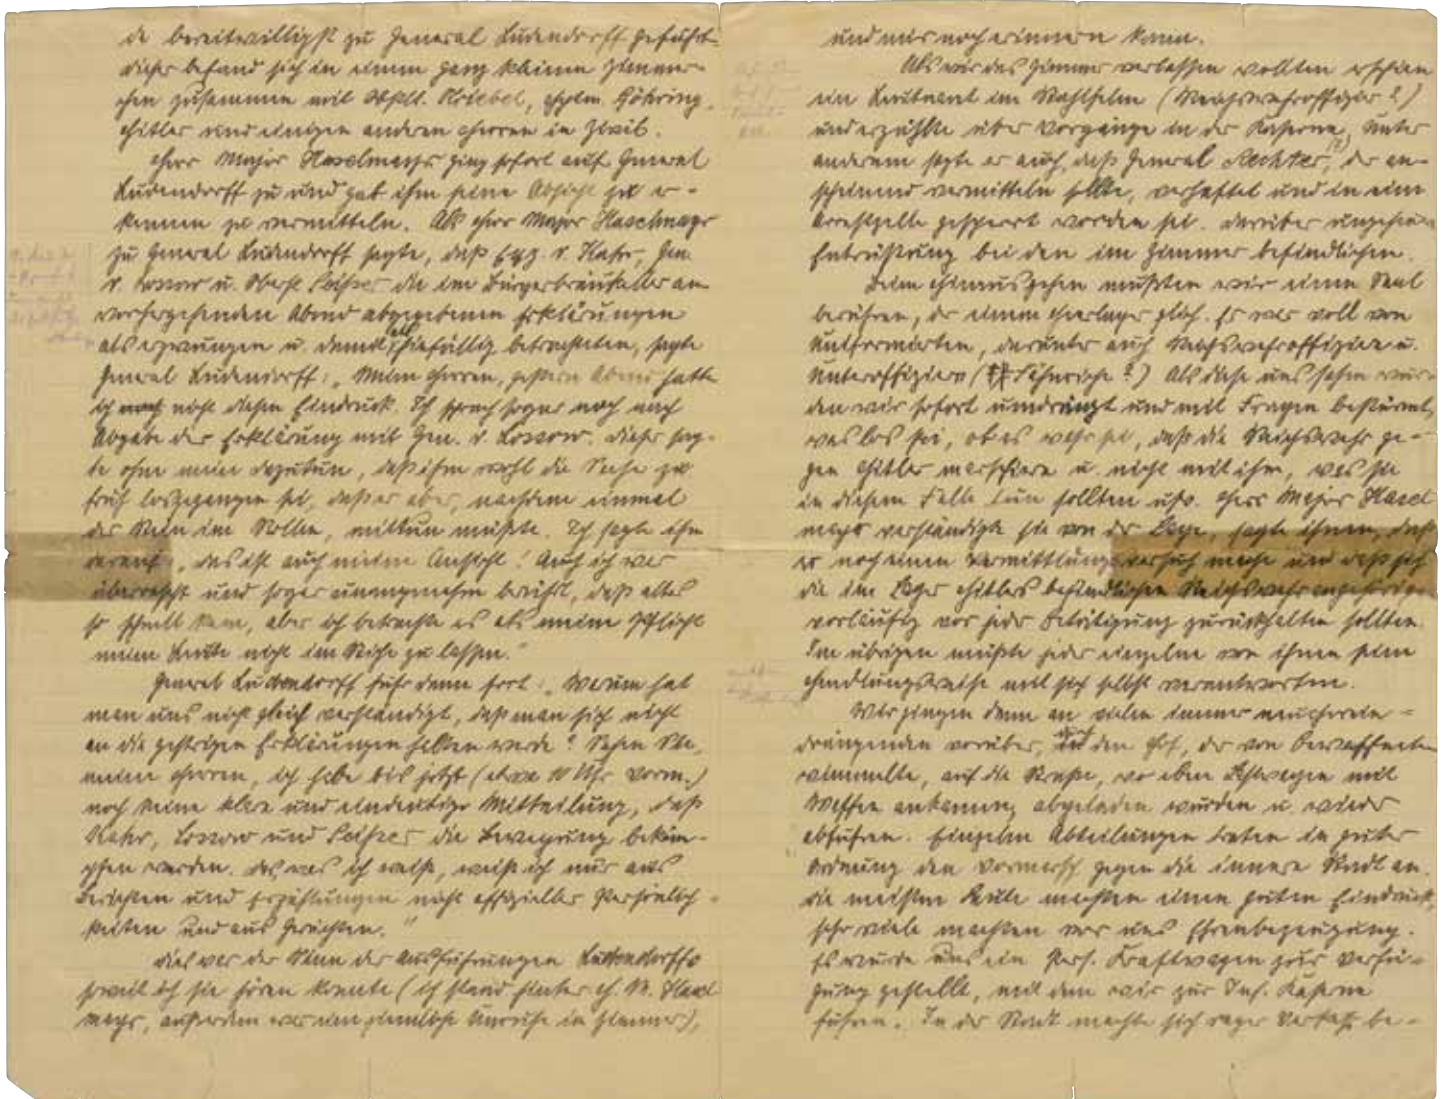 de bereitwilligst zu General Ludendorff geführt.
Dieser befand sich in einem ganz kleinen Zimmer-
chen zusammen mit Obstl. Kriebel, Hptm. Göhring,
Hitler und einigen anderen Herren in Zivil.
Herr Major Haselmayr ging sofort auf General
Ludendorff zu und gab ihm seine Absicht zu er-
kennen zu vermitteln. Als Herr Major Haselmayr
zu General Ludendorff sagte, daß Exz. v. Kahr, Gen.
v. Lossow u. Oberst Seißer die im Bürgerbräukeller am
vorhergehenden Abend abgegebenen Erklärungen
als erzwungen u. damit als hinfällig betrachteten, sagte
General Ludendorff: „Meine Herren, gestern Abend hatte
ich noch nicht diesen Eindruck. Ich sprach sogar noch nach
Abgabe der Erklärung mit Gen. v. Lossow. Dieser sag-
te ohne mein dazutun, daß ihm wohl die Sache zu
früh losgegangen sei, daß er aber, nachdem einmal
der Stein im Rollen, mittun müßte. Ich sagte ihm
darauf „das ist auch meine Ansicht! Auch ich war
überrascht und sogar unangenehm berührt, daß alles
so schnell kam, aber ich betrachte es als meine Pflicht
meine Leute nicht im Stiche zu lassen."
General Ludendorff fuhr dann fort: „Warum hat
man uns nicht gleich verständigt, daß man sich nicht
an die gestrigen Erklärungen halten werde? Sehen Sie,
meine Herren, ich habe bis jetzt (etwa 10 Uhr vorm.)
noch keine klare und eindeutige Mitteilung, daß
Kahr, Lossow und Seißer die Bewegung bekäm-
pfen werden. Das was ich weiß, weiß ich nur aus
Berichten und Erzählungen nicht offizieller Persönlich-
keiten und aus Gerüchten."
Dies war der Sinn der Ausführungen Ludendorffs
soweit ich sie hören konnte (ich stand hinter H. M. Hasel-
mayr, außerdem war eine ziemliche Unruhe im Zimmer),
und mich noch erinnern kann.
Als wir das Zimmer verlassen wollten erschien
ein Leutnant im Stahlhelm (Reichswehroffizier?)
und erzählte über Vorgänge in der Kaserne, unter
anderem sagte er auch, daß General Aechter (?), der an-
scheinend vermitteln sollte, verhaftet und in eine
Arrestzelle gesperrt worden sei. Darüber ungeheure
Entrüstung bei den im Zimmer befindlichen.
Beim Hinausgehen mußten wir einen Saal
berühren, der einem Heerlager glich. Er war voll von
Uniformierten, darunter auch Reichswehroffiziere u.
Unteroffiziere (Fähnriche?) Als diese uns sahen wur-
den wir sofort umdrängt und mit Fragen bestürmt,
was los sei, ob es wahr sei, daß die Reichswehr ge-
gen Hitler marschiere u. nicht mit ihm, was sie
in diesem Falle tun sollten usw. Herr Major Hasel-
mayr verständigte sie von der Lage, sagte ihnen, daß
er noch einen Vermittlungsversuch mache und daß sich
die im Lager Hitlers befindlichen Reichswehrangehörigen
vorläufig vor jeder Betätigung zurückhalten sollten.
Im übrigen müßte jeder einzelne von ihnen seine
Handlungsweise mit sich selbst verantworten.
Wir gingen dann an vielen immer neu herein-
drängenden vorüber, in den Hof, der von Bewaffneten
wimmelte, auf die Straße, wo eben Lastwagen mit
Waffen ankamen, abgeladen wurden u. wieder
abfuhren. Einzelne Abteilungen traten in guter
Ordnung den Vormarsch gegen die innere Stadt an.
Die meisten Leute machten einen guten Eindruck,
sehr viele machten vor uns Ehrenbezeugung.
Es wurde uns ein Pers. Kraftwagen zur Verfü-
gung gestellt, mit dem wir zur Inf. Kaserne
fuhren. In der Stadt machte sich reger Verkehr be-